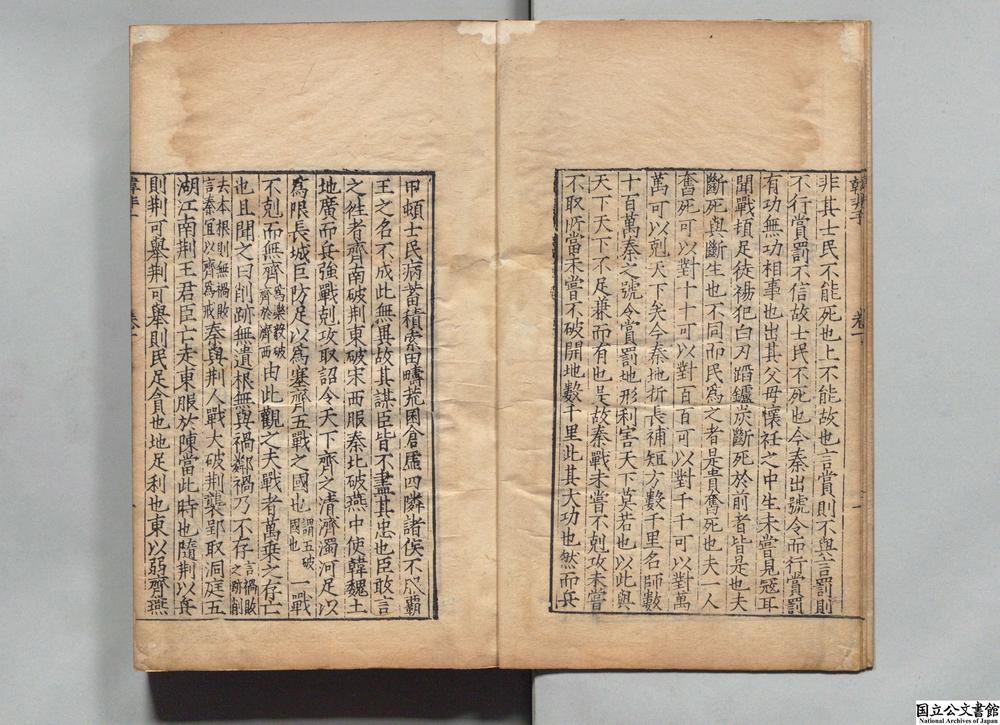 韓非子 卷一 一
非其士民不能死也上不能故也言賞則不與言罰則
不行賞罰不信故士民不死也今秦出號令而行賞罰
有功無功相事也出其父母懷衽之中生未嘗見冦耳
聞戰頓足徒裼犯白刃蹈鑪炭斷死於前者皆是也夫
斷死與斷生也不同而民爲之者是貴奮死也夫一人
奮死可以對十十可以對百百可以對千千可以對萬
萬可以剋天下矣今秦地折長補短方數千里名師數
十百萬秦之號令賞罰地形利害天下莫若也以此與
天下天下不足兼而有也是故秦戰未嘗不剋攻未嘗
不取所當未嘗不破開地數千里此其大功也然而兵
甲頓士民病蓄積索田疇荒囷倉虛四隣諸侯不服霸
王之名不成此無異故其謀臣皆不盡其忠也臣敢言
之徃者齊南破荆東破宋西服秦北破燕中使韓魏土
地廣而兵強戰剋攻取詔令天下齊之清濟濁河足以
爲限長城巨防足以爲塞齊五戰之國也謂五破國也一戰
不剋而無齊爲樂毅破齊於濟西由此觀之夫戰者萬乘之存亡
也且聞之曰削跡無遺根無與禍鄰禍乃不存言禍敗之跡削
去本根則無禍敗言秦宜以齊爲戒秦與荆人戰大破荆襲郢取洞庭五
湖江南荆王君臣亡走東服於陳當此時也隨荆以兵
則荆可舉荆可舉則民足貪也地足利也東以弱齊燕
卷一 一
国立公文書館
National Archives of Japan